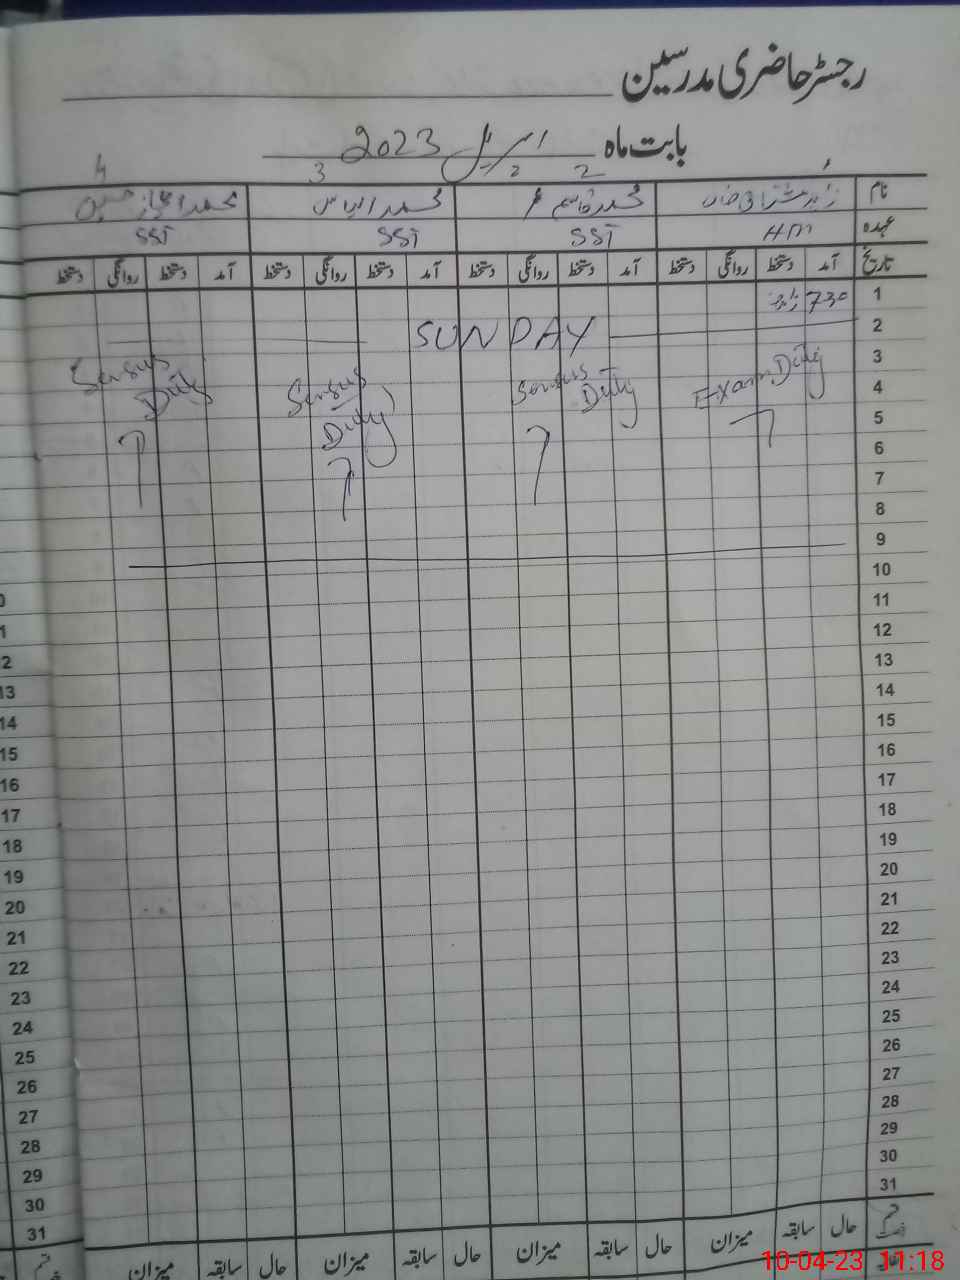 رجسٹر حاضری مدرسین
بابت ماہ اپریل 2023
2 2 3 4
نام محمد قاسم محمد الیاس محمد اعجاز حسین
عہدہ HM SST SST SST
تاریخ آمد دستخط روانگی دستخط آمد دستخط روانگی دستخط آمد دستخط روانگی دستخط آمد دستخط روانگی دستخط
1 730
2 SUNDAY
3
4 Exam Duty Sensus Duty Sensus Duty Sensus Duty
5
6
7
8
9
10
11
12
13
14
15
16
17
18
19
20
21
22
23
24
25
26
27
28
29
30
31
حال سابقہ میزان حال سابقہ میزان حال سابقہ میزان حال سابقہ میزان
13
14
15
16
17
18
19
20
21
22
23
24
25
26
27
28
29
30
31
10-04-23 11:18